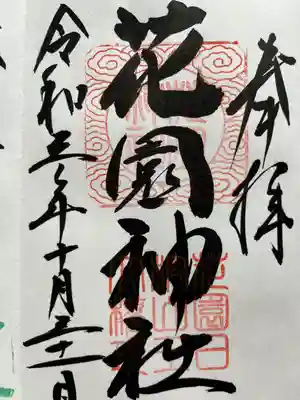 奉拝
花園神社
令和三年十月三十一日